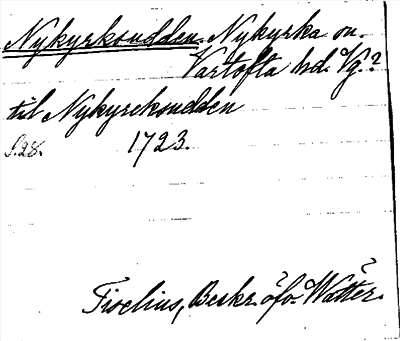 Nykyrksudden. Nykyrka sn.
Vartofta hd. Vg.?
till Nykyrcksudden
S. 28. 1723.
Tiselius, Beskr. öfv. Wätter.